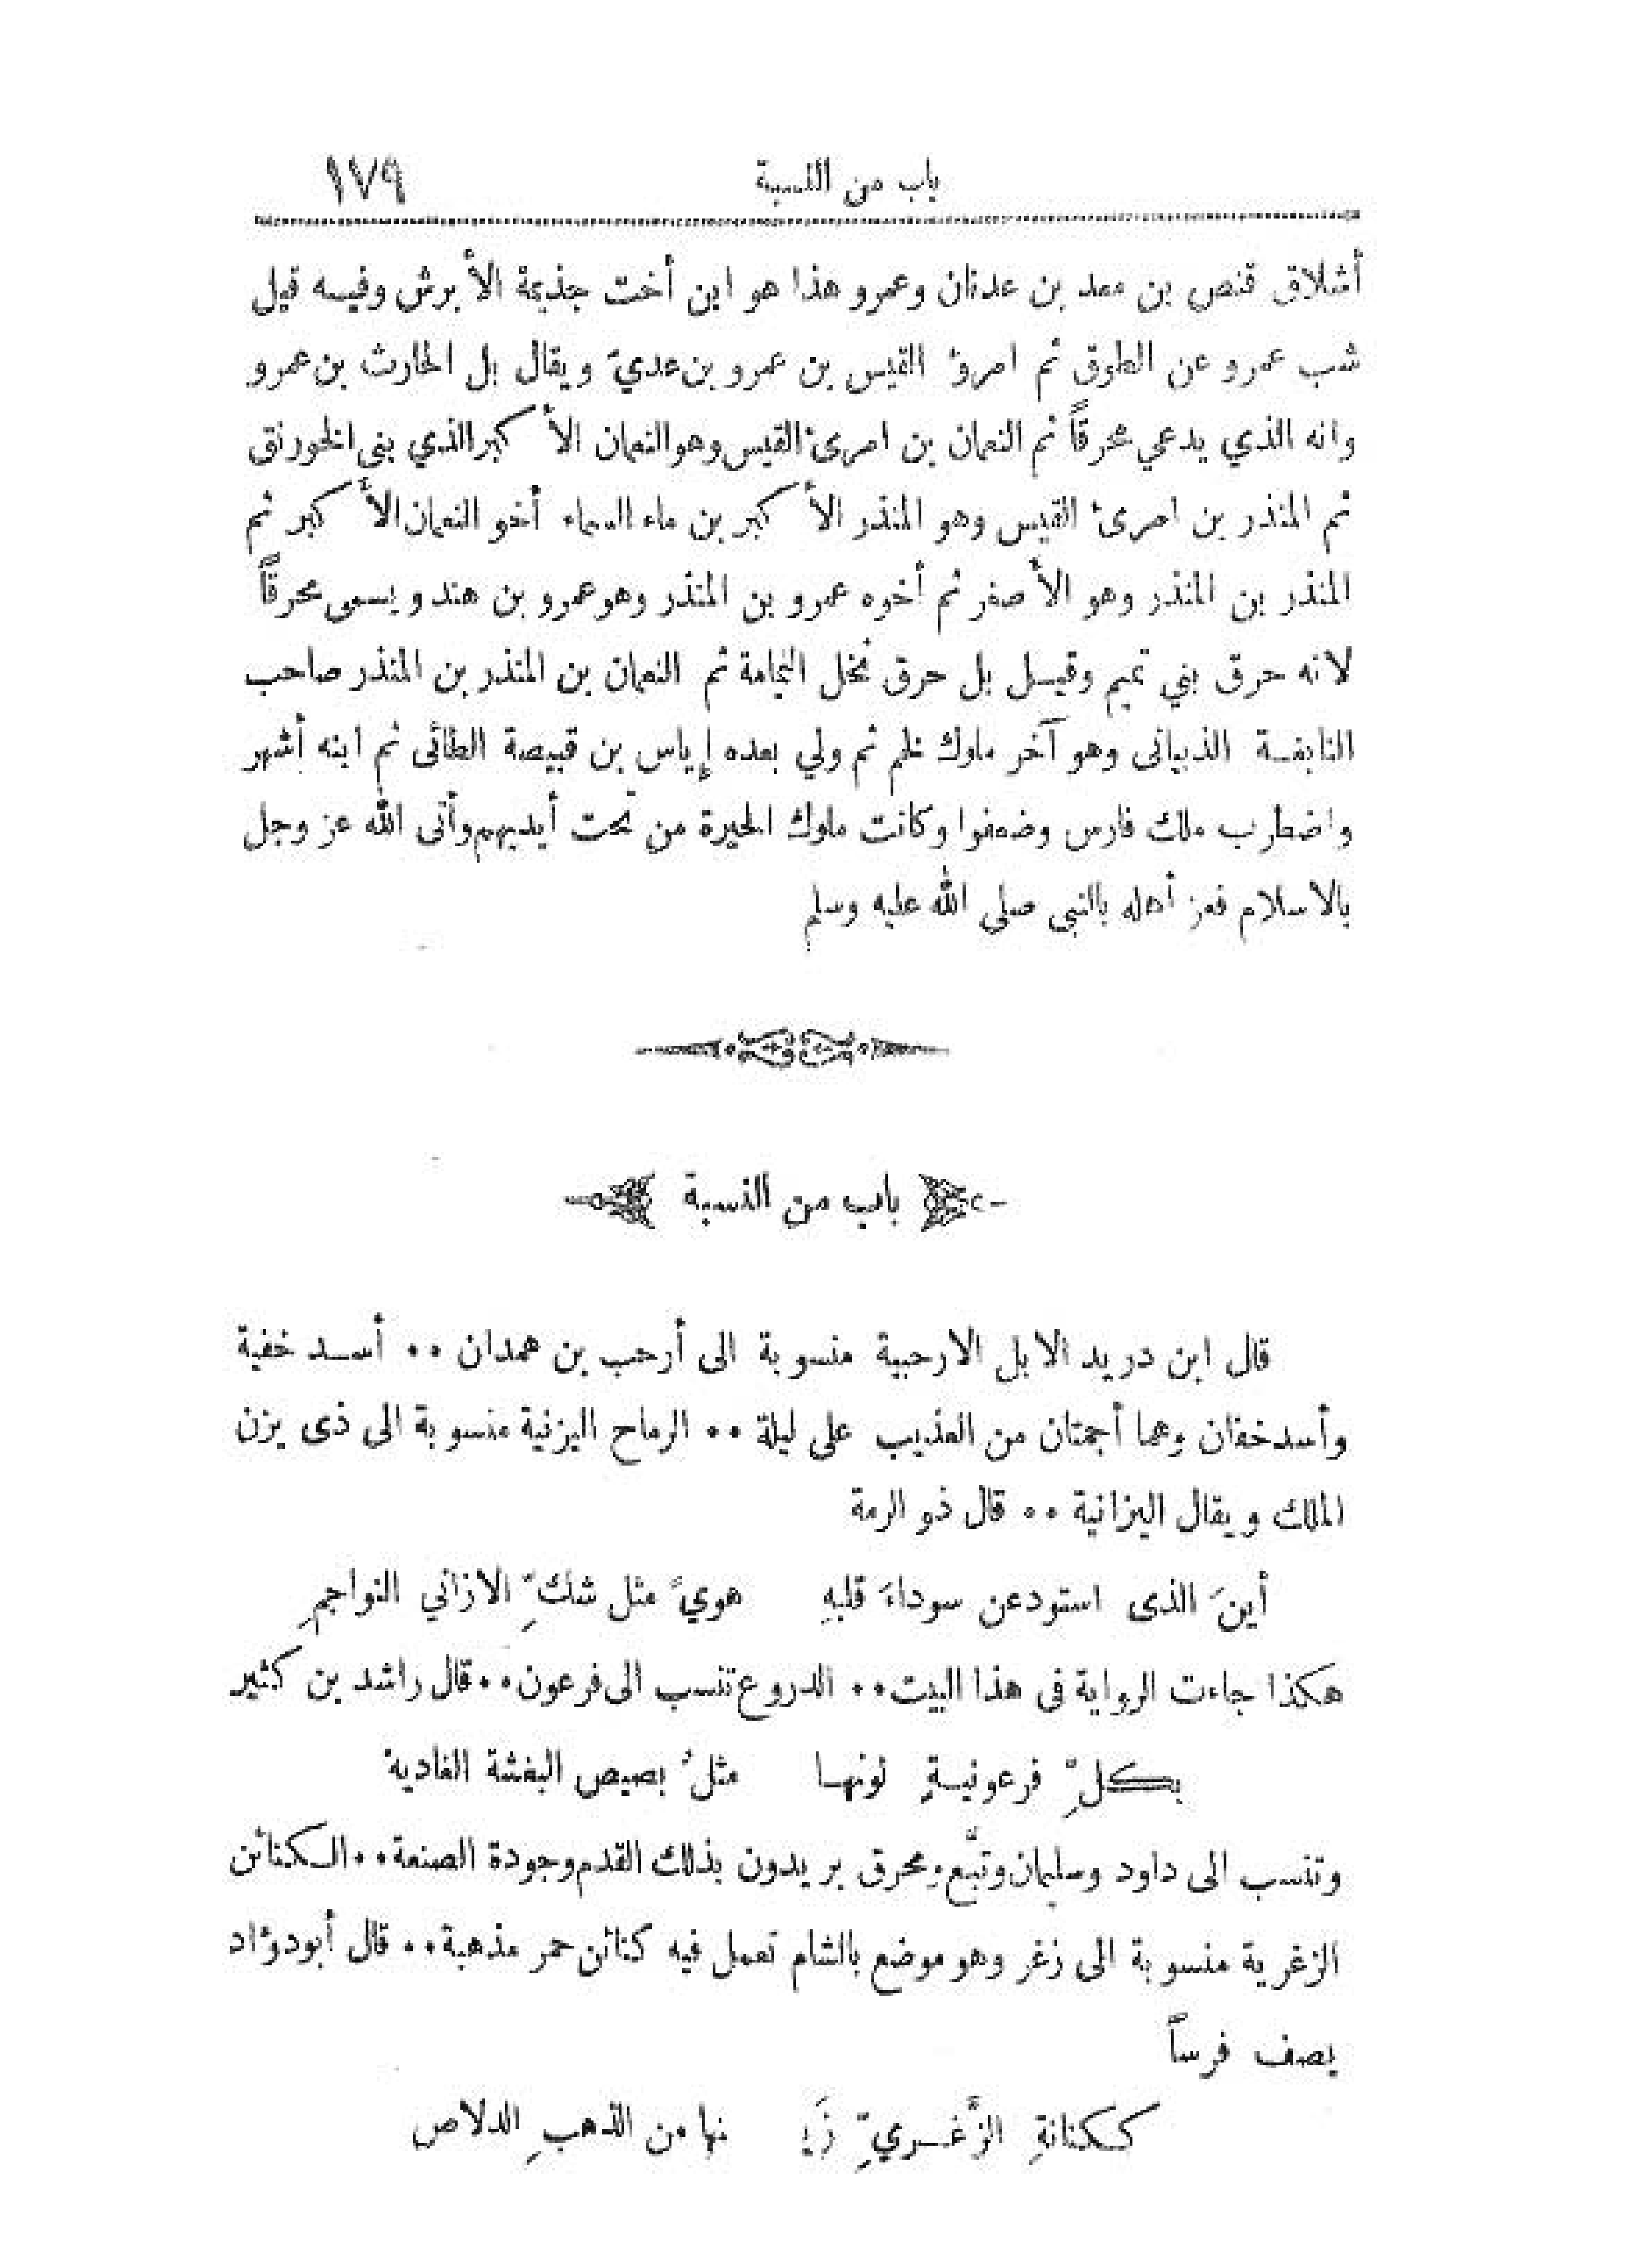 باب من النسبة ١٧٩
أشلاق قنص بن معد بن عدنان وعمرو هذا هو ابن أخت جذيمة الأبرش وفيه قيل
شب عمرو عن الطوق ثم امرؤ القيس بن عمرو بن عديّ ويقال بل الحارث بن عمرو
وانه الذي يدعي محرقاً ثم النعمان بن امرئ القيس وهو النعمان الأكبر الذي بنى الخورنق
ثم المنذر بن امرئ القيس وهو المنذر الأكبر بن ماء السماء أخو النعمان الأكبر ثم
المنذر بن المنذر وهو الأصغر ثم أخوه عمرو بن المنذر وهو عمرو بن هند ويسمى محرقاً
لانه حرق بني تميم وقيل بل حرق نخل اليمامة ثم النعمان بن المنذر بن المنذر صاحب
النابغة الذبيانى وهو آخر ملوك لخم ثم ولي بعده إياس بن قبيصة الطائى ثم ابنه أشهر
واضطرب ملك فارس وضعفوا وكانت ملوك الحيرة من تحت أيديهم وأتى الله عز وجل
بالاسلام فعز أهله بالنبى صلى الله عليه وسلم
باب من النسبة
قال ابن دريد الابل الارحبية منسوبة الى أرحب بن همدان ٠٠ أسد خفية
وأسد خفان وهما أجمتان من العذيب على ليلة ٠٠ الرماح اليزنية منسوبة الى ذى يزن
الملك ويقال اليزانية ٠٠ قال ذو الرمة
أينَ الذى استودعن سوداءَ قلبهِ هويً مثل شكِّ الازاني النواجمِ
هكذا جاءت الرواية فى هذا البيت ٠٠ الدروع تنسب الى فرعون ٠٠ قال راشد بن كثير
بكلِّ فرعونيةٍ لونها مثلُ بصيص البغشة الغاديهْ
وتنسب الى داود وسليمان وتبَّع ومحرق يريدون بذلك القدم وجودة الصنعة ٠٠ الكنائن
الزغرية منسوبة الى زغر وهو موضع بالشام تعمل فيه كنائن حمر مذهبة ٠٠ قال أبو دؤاد
يصف فرساً
ككنانةِ الزَّغريِّ زَيـ نها من الذهبِ الدلاص